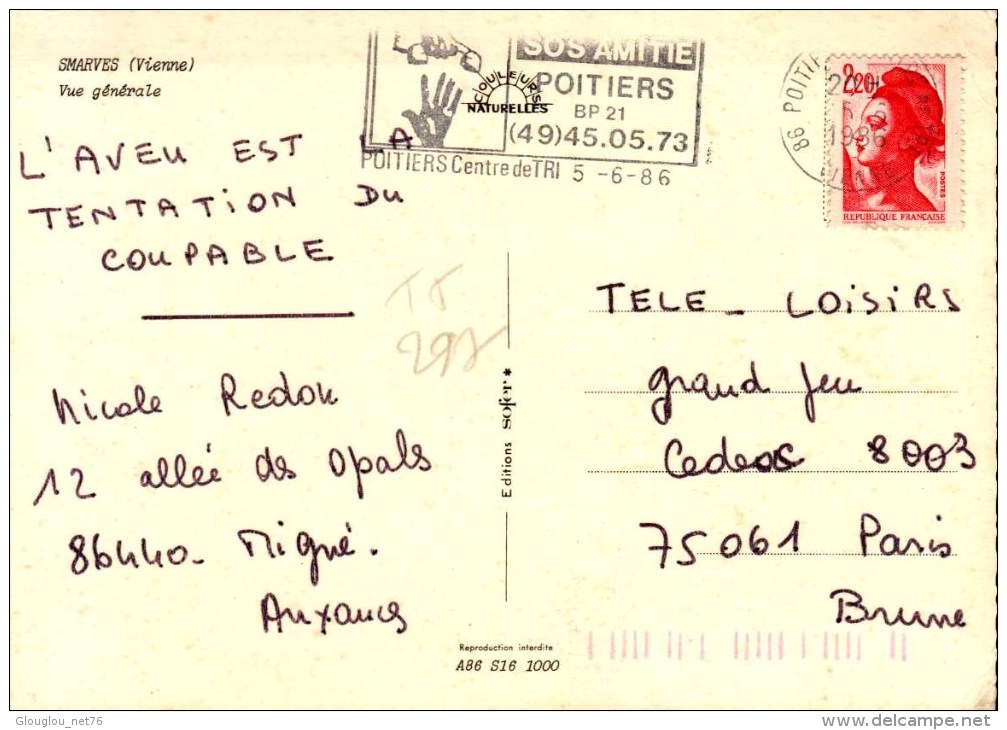 SMARVES (Vienne)
Vue générale
L'AVEU EST LA
TENTATION DU
COUPABLE
Nicole Redon
12 allée des Opals
86440 - Migné.
Auxances
SOS AMITIE
POITIERS
BP 21
(49)45.05.73
COULEURS
NATURELLES
POITIERS Centre de TRI 5 -6-86
86 POITIERS
5 - 6
1986
VIENNE
2,20
POSTES
REPUBLIQUE FRANÇAISE
TJ
297
Editions sofer.*
TELE - LOISIRS
grand jeu
Cedex 8003
75061 Paris
Brune
Reproduction interdite
A86 S16 1000
Glouglou_net76
www.delcampe.net